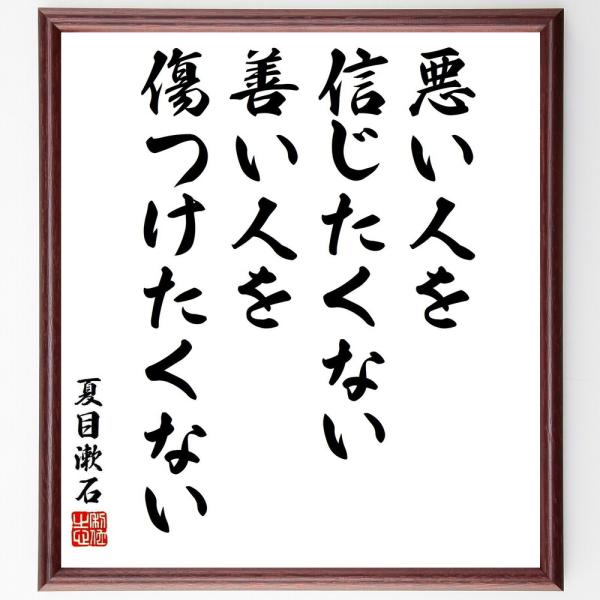 悪い人を
信じたくない
善い人を
傷つけたくない
夏目漱石